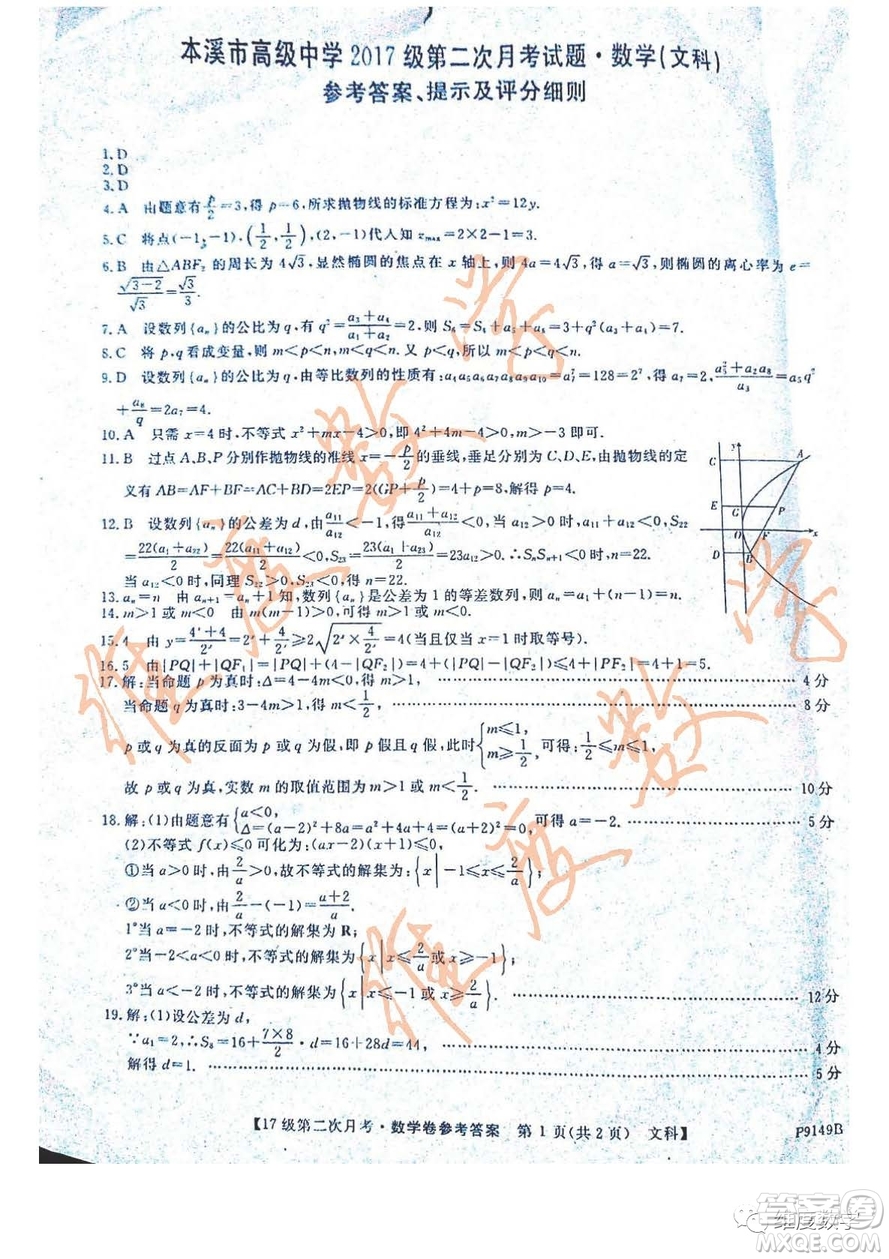 本溪市高级中学2017级第二次月考试题·数学(文科)
参考答案、提示及评分细则
1.D
2.D
3.D
4.A 由题意有p/2=3,得p=6,所求抛物线的标准方程为:x²=12y.
5.C 将点(-1,-1),(1/2,1/2),(2,-1)代入知z_max=2×2-1=3.
6.B 由△ABF₂的周长为4√3,显然椭圆的焦点在x轴上,则4a=4√3,得a=√3,则椭圆的离心率为e=
√(3-2)/√3=√3/3.
7.A 设数列{aₙ}的公比为q,有q²=(a₃+a₄)/(a₁+a₂)=2,则S₆=S₄+a₅+a₆=3+q²(a₃+a₄)=7.
8.C 将p,q看成变量,则m<p<n,m<q<n.又p<q,所以m<p<q<n.
9.D 设数列{aₙ}的公比为q.由等比数列的性质有:a₄a₅a₆a₇a₈a₉a₁₀=a₇⁷=128=2⁷,得a₇=2,(a₅²+a₂a₈)/a₃=a₅q²
+a₈/q=2a₇=4.
10.A 只需x=4时,不等式x²+mx-4>0,即4²+4m-4>0,m>-3即可.
11.B 过点A、B、P分别作抛物线的准线x=-p/2的垂线,垂足分别为C、D、E,由抛物线的定
义有AB=AF+BF=AC+BD=2EP=2(GP+p/2)=4+p=8,解得p=4.
C E D G O B F P A x y
12.B 设数列{aₙ}的公差为d,由a₁₁/a₁₂<-1,得(a₁₁+a₁₂)/a₁₂<0,当a₁₂>0时,a₁₁+a₁₂<0,S₂₂
=22(a₁+a₂₂)/2=22(a₁₁+a₁₂)/2<0,S₂₃=23(a₁+a₂₃)/2=23a₁₂>0.∴SₙSₙ₊₁<0时,n=22.
当a₁₂<0时,同理S₂₂>0,S₂₃<0,得n=22.
13.aₙ=n 由aₙ₊₁=aₙ+1知,数列{aₙ}是公差为1的等差数列,则aₙ=a₁+(n-1)=n.
14.m>1或m<0 由m(m-1)>0,得m>1或m<0.
15.4 由y=(4ˣ+4)/2ˣ=2ˣ+4/2ˣ≥2√(2ˣ×4/2ˣ)=4(当且仅当x=1时取等号).
16.5 由|PQ|+|QF₁|=|PQ|+(4-|QF₂|)=4+(|PQ|-|QF₂|)≤4+|PF₂|=4+1=5.
17.解:当命题p为真时:Δ=4-4m<0,得m>1, 4分
当命题q为真时:3-4m>1,得m<1/2. 8分
p或q为真的反面为p或q为假,即p假且q假,此时{m≤1, m≥1/2,可得:1/2≤m≤1.
故p或q为真,实数m的取值范围为m>1或m<1/2. 10分
18.解:(1)由题意有{a<0, Δ=(a-2)²+8a=a²+4a+4=(a+2)²=0,可得a=-2. 5分
(2)不等式f(x)≤0可化为:(ax-2)(x+1)≤0.
①当a>0时,由2/a>0,故不等式的解集为:{x|-1≤x≤2/a};
②当a<0时,由2/a-(-1)=(a+2)/a.
1°当a=-2时,不等式的解集为R;
2°当-2<a<0时,不等式的解集为{x|x≤2/a或x≥-1};
3°当a<-2时,不等式的解集为{x|x≤-1或x≥2/a}. 12分
19.解:(1)设公差为d,
∵a₁=2,∴S₈=16+(7×8)/2·d=16+28d=44, 4分
解得d=1. 5分
【17级第二次月考·数学卷参考答案 第1页(共2页) 文科】
P9149B
维度数学
维度数学
维度数学
答案圈
MXQE.COM